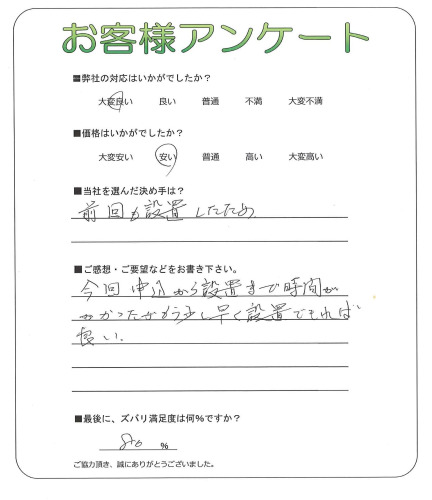 お客様アンケート
■弊社の対応はいかがでしたか?
大変良い 良い 普通 不満 大変不満
■価格はいかがでしたか?
大変安い 安い 普通 高い 大変高い
■当社を選んだ決め手は?
前回も設置したため
■ご感想・ご要望などをお書き下さい。
今回申込から設置まで時間が
かかったがもう少し早く設置できれば
良い.
■最後に、ズバリ満足度は何%ですか?
80 %
ご協力頂き、誠にありがとうございました。